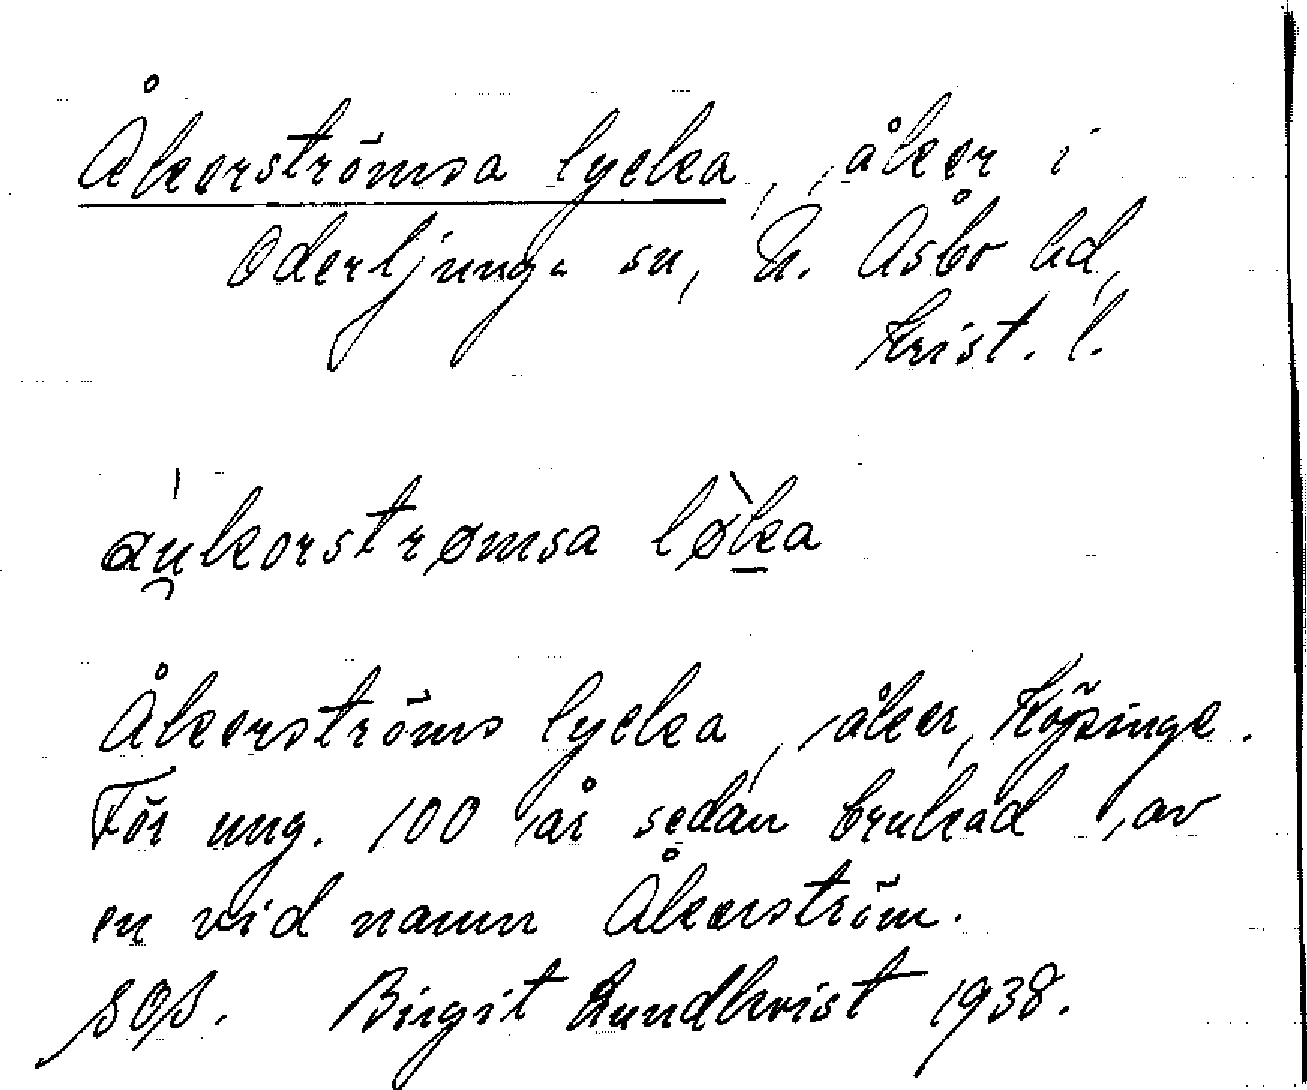 Åkerströmsa lycka, åker i
Oderljunga sn, N. Åsbo hd,
Krist. l.
áu̯korstrømsa lø̀ka
Åkerströms lycka, åker, Köpinge.
För ung. 100 år sedan brukad av
en vid namn Åkerström.
SOS. Birgit Lundkvist 1938.